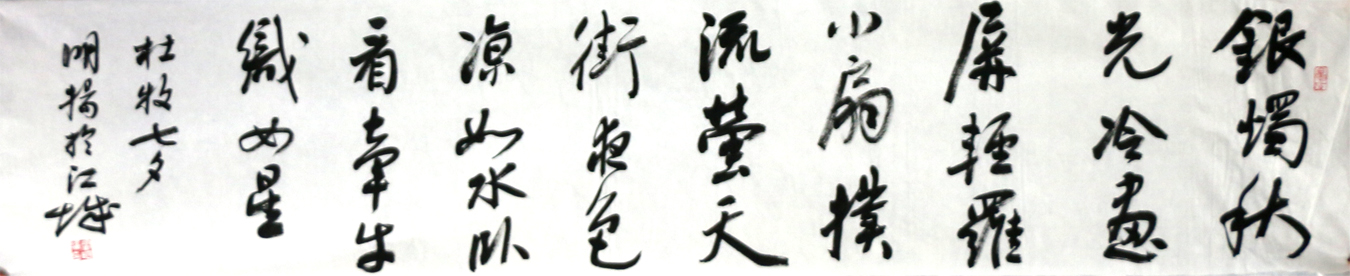 銀燭秋
光冷畫
屏輕羅
小扇撲
流螢天
街夜色
凉如水卧
看牽牛
織女星
杜牧七夕
明揚於江城